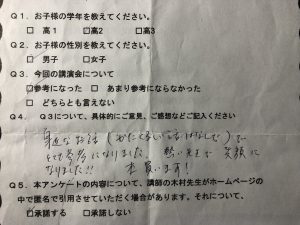 Q1. お子様の学年を教えてください。
□ 高1 ☑高2 □高3
Q2. お子様の性別を教えてください。
□ 男子 ☑女子
Q3. 今回の講演会について
☑参考になった □ あまり参考にならなかった
□ どちらとも言えない
Q4. Q3について、具体的にご意見、ご感想などご記入ください
身近なお話(かたくるしい話はなしで)で
とても参考になりました 笑顔に
なりました!! 本買います!
Q5. 本アンケートの内容について、講師の木村先生がホームページの
中で匿名で引用させていただく場合があります。それについて、
☑承諾する □承諾しない